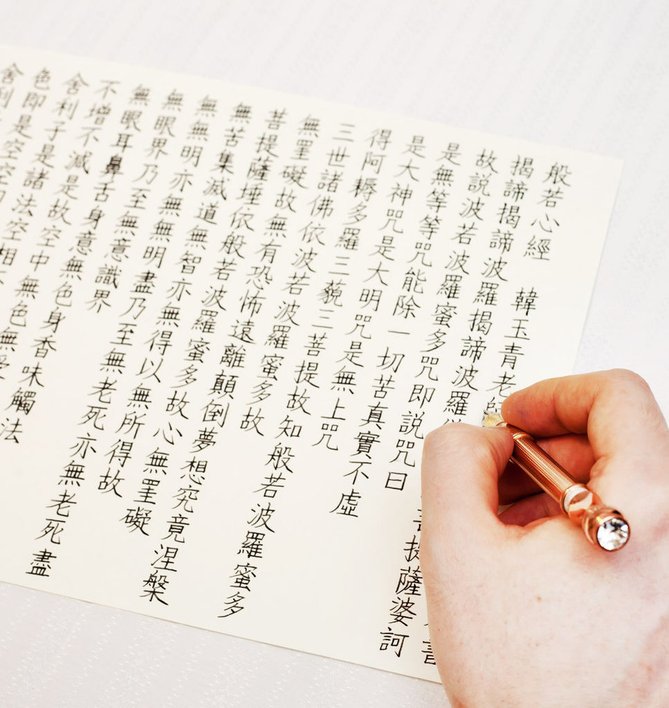 舍利
色即是空空
舍利子是諸法空相
不增不減是故空中無色無受
無眼耳鼻舌身意無色身香味觸法
無眼界乃至無意識界
無明亦無無明盡乃至無老死亦無老死盡
無苦集滅道無智亦無得以無所得故
菩提薩埵依般若波羅蜜多故心無罣礙
無罣礙故無有恐怖遠離顛倒夢想究竟涅槃
三世諸佛依波若波羅蜜多故
得阿耨多羅三藐三菩提故知般若波羅蜜多
是大神咒是大明咒是無上咒
是無等等咒能除一切苦真實不虛
故說波若波羅蜜多咒即說咒曰
揭諦揭諦波羅揭諦波羅 菩提薩婆訶
般若心經 韓玉青老 書